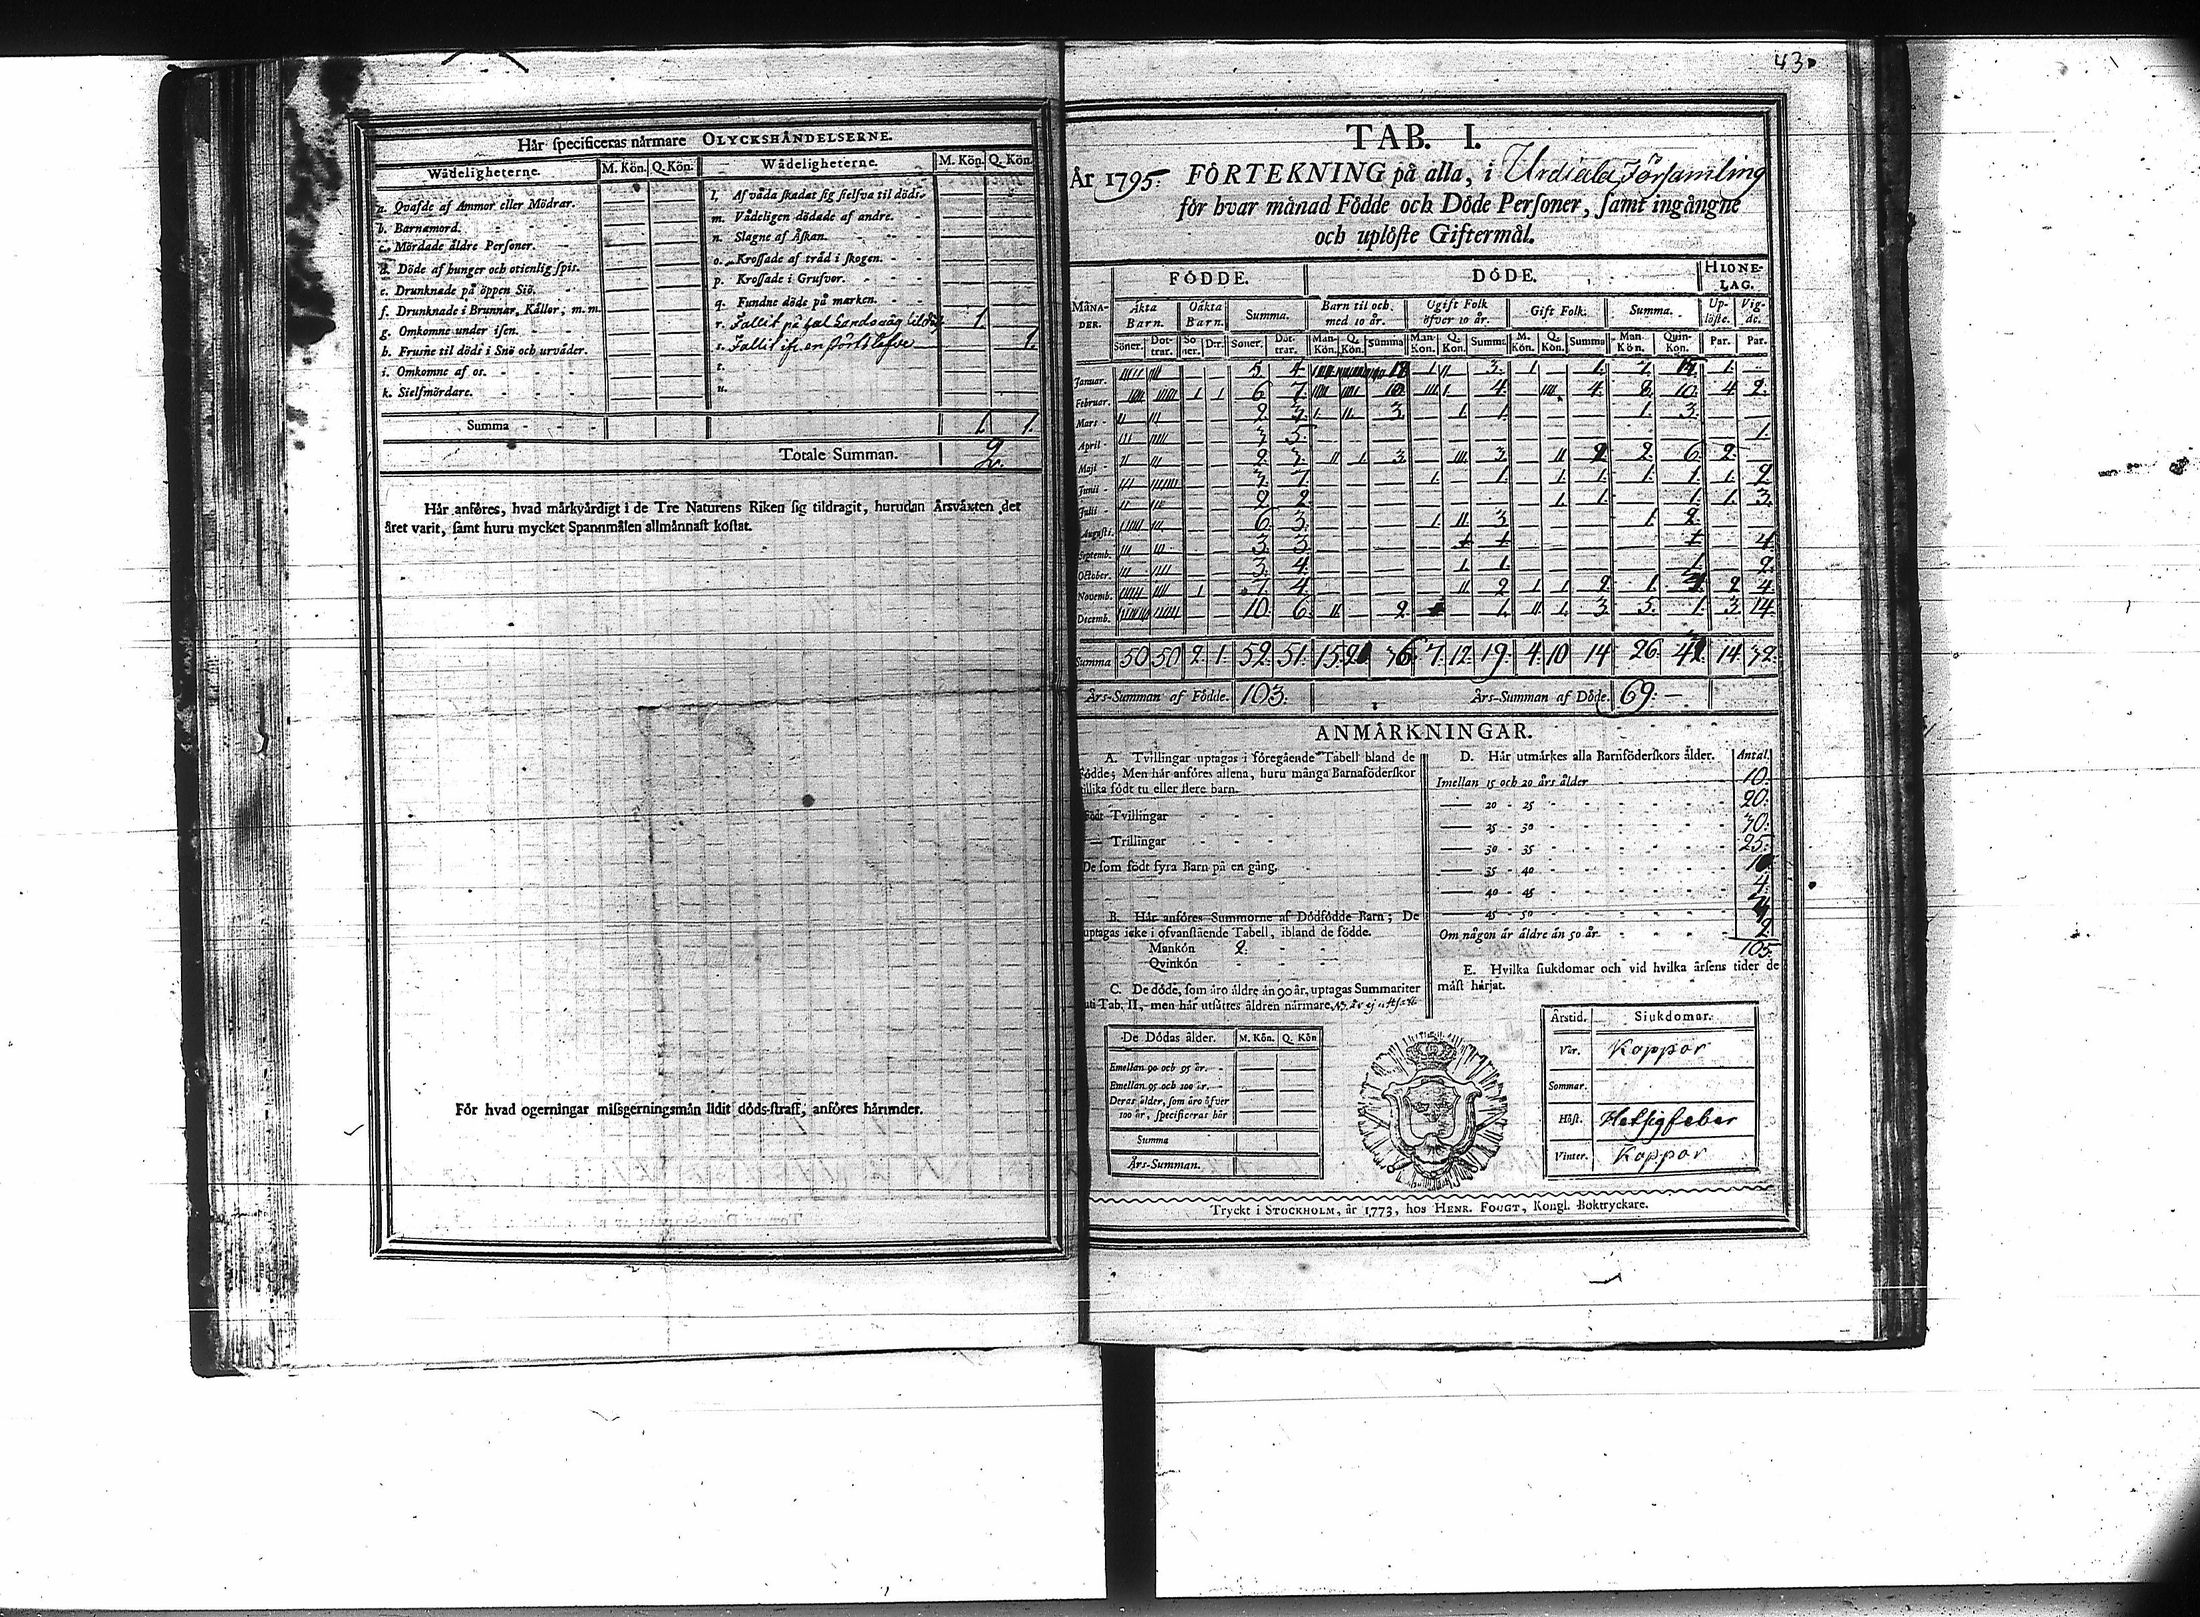 Hår specificeras nårmare OLYCKSHÅNDELSERNE.
Wådeligheterne. M. Kön. Q. Kön. Wådeligheterne. M. Kön. Q. Kön.
a. Qvafde af Ammor eller Mödrar.
b. Barnamord.
c. Mördade åldre Personer.
d. Döde af hunger och otienlig spis.
e. Drunknade på öppen Siö.
f. Drunknade i Brunnar, Kållor, m. m.
g. Omkomne under isen.
h. Frusne til döds i Snö och urvåder.
i. Omkomne af os.
k. Sielfmördare.
l. Af våda skadat sig sielfva til döds.
m. Vådeligen dödade af andre.
n. Slagne af Åskan.
o. Krossade af tråd i skogen.
p. Krossade i Grufvor.
q. Fundne döde på marken.
r. Fallit på hal Landsväg 1
s. Fallit en 1.
t.
u.
Summa 1. 1.
Totale Summan. 2.
Hår anföres, hvad mårkvårdigt i de Tre Naturens Riken sig tildragit, hurudan Årsvåxten det
året varit, samt huru mycket Spannmålen allmånnast kostat.
För hvad ogerningar missgerningsmån lidit döds-straff, anföres hårunder.
43
TAB. I.
År 1795. FÖRTEKNING på alla, i Urdiala Församling
för hvar månad Födde och Döde Personer, samt ingångne
och uplöste Giftermål.
FÖDDE. DÖDE. HIONELAG.
MÅNADER. Åkta Barn. Oåkta Barn. Summa. Barn til och med 10 år. Ogift Folk öfver 10 år. Gift Folk. Summa. Uplöste. Vigde.
Söner. Döttrar. Söner. D:r. Söner. Döttrar. Man-Kön. Q. Kön. Summa Man-Kön. Q. Kön. Summa M. Kön. Q. Kön. Summa Man-Kön. Quin-Kön. Par. Par.
Januar. 5. 4. 3. 1. 7. 1.
Februar. 1 1 6 7. 10 4. 4. 8. 10. 4 2.
Mars 2 3. 3. 1. 1. 3.
April 3 5. 1.
Maji 2 3. 3. 3. 2 2. 6. 2.
Junii 3. 7. 1. 1. 1. 1. 1. 2
Julii 2 2. 1. 1 1. 3.
Augusti. 6 3. 3. 1. 2.
Septemb. 3 3. 1 1 4
October. 3. 4. 1. 1. 2.
Novemb. 1 7. 4. 2 2. 1. 2 4
Decemb. 10 6. 2. 1. 3. 5. 1. 3. 14
Summa 50 50 2. 1. 52. 51. 15. 36. 7. 12. 19. 4. 10 14 26. 14. 32.
Års-Summan af Födde. 103. Års-Summan af Döde. 69.
ANMÅRKNINGAR.
A. Tvillingar uptagas i föregående Tabell bland de
födde; Men hår anföres allena, huru många Barnaföderskor
tillika födt tu eller flere barn.
Födt Tvillingar
— Trillingar
De som födt fyra Barn på en gång.
B. Hår anföres Summorne af Dödfödde Barn; De
uptagas icke i ofvanstående Tabell, ibland de födde.
Mankön 2.
Qvinkön
C. De döde, som åro åldre ån 90 år, uptagas Summariter
uti Tab. II, men hår utsåttes åldren nårmare.
De Dödas ålder. M. Kön. Q. Kön
Emellan 90 och 95 år.
Emellan 95 och 100 år.
Deras ålder, som åro öfver
100 år, specificeras hår
Summa
Års-Summan.
D. Hår utmårkes alla Barnföderskors ålder. Antal.
Imellan 15 och 20 års ålder 10.
20 - 25 20.
25 - 30 30.
30 - 35 25.
35 - 40
40 - 45 4.
45 - 50
Om någon år åldre ån 50 år. 2.
105.
E. Hvilka siukdomar och vid hvilka årsens tider de
måst hårjat.
Årstid. Siukdomar.
Vår. Koppor
Sommar.
Höst. Hetsigfeber
Vinter. Koppor
Tryckt i STOCKHOLM, år 1773, hos HENR. FOUGT, Kongl. Boktryckare.